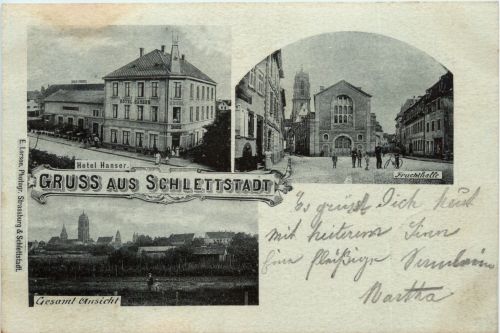 HOTEL HANSER
Hotel Hanser.
Fruchthalle
GRUSS AUS SCHLETTSTADT
Gesamt Ansicht
E. Larsen, Photogr. Strassburg & Schlettstadt.
Es grüsst Dich
mit heiterem Sinn
fleißige
Martha